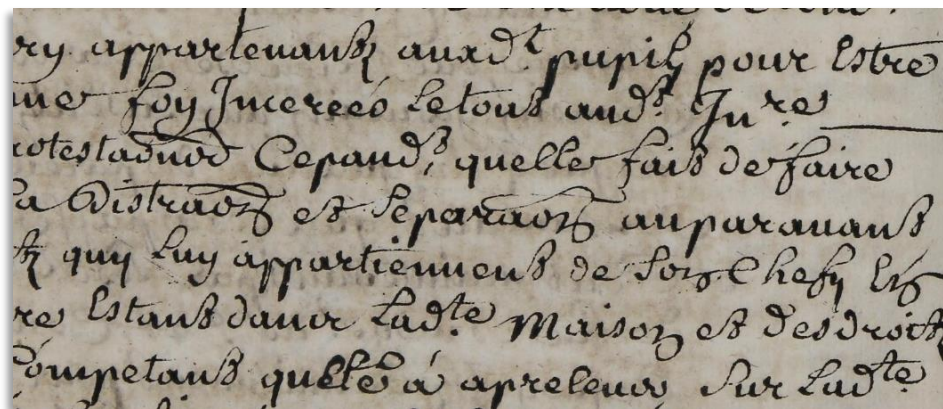 appartenants auxd.t pupils pour Estre
foy Incerées le tout aud.t Inv.re
Cepand.t quelle fait de faire
la distraõn et separaõn auparavant
quy luy appartiennent de son Chef En
re Estant dans Lad.te Maison et des droits
Compétant quelle a aprelever Sur Lad.te